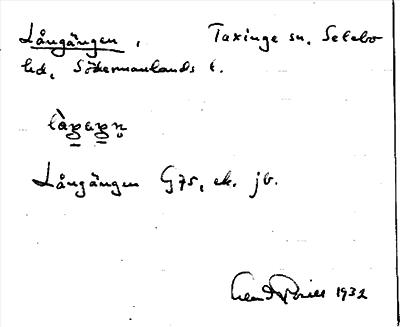 Långängen, Taxinge sn, Selebo
hd, Södermanlands l.
Långängen G75, ek. jb.
1932